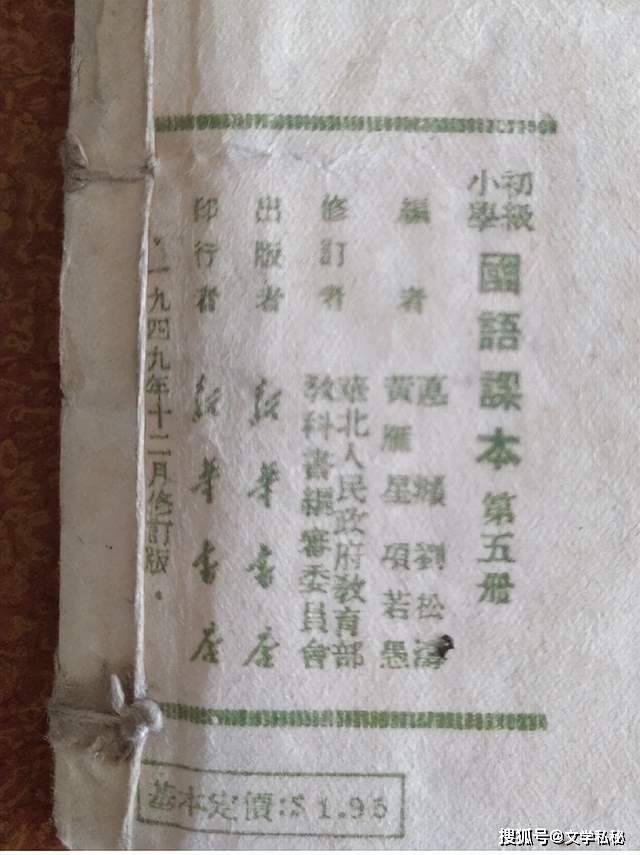 初級小學 國語課本 第五册
編者 惠頫 劉松濤
黃雁星 項若愚
修訂者 華北人民政府教育部
教科書編審委員會
出版者 新華書店
印行者 新華書店
·一九四九年十二月修訂版·
基本定價:$1.95
搜狐号@文学私秘